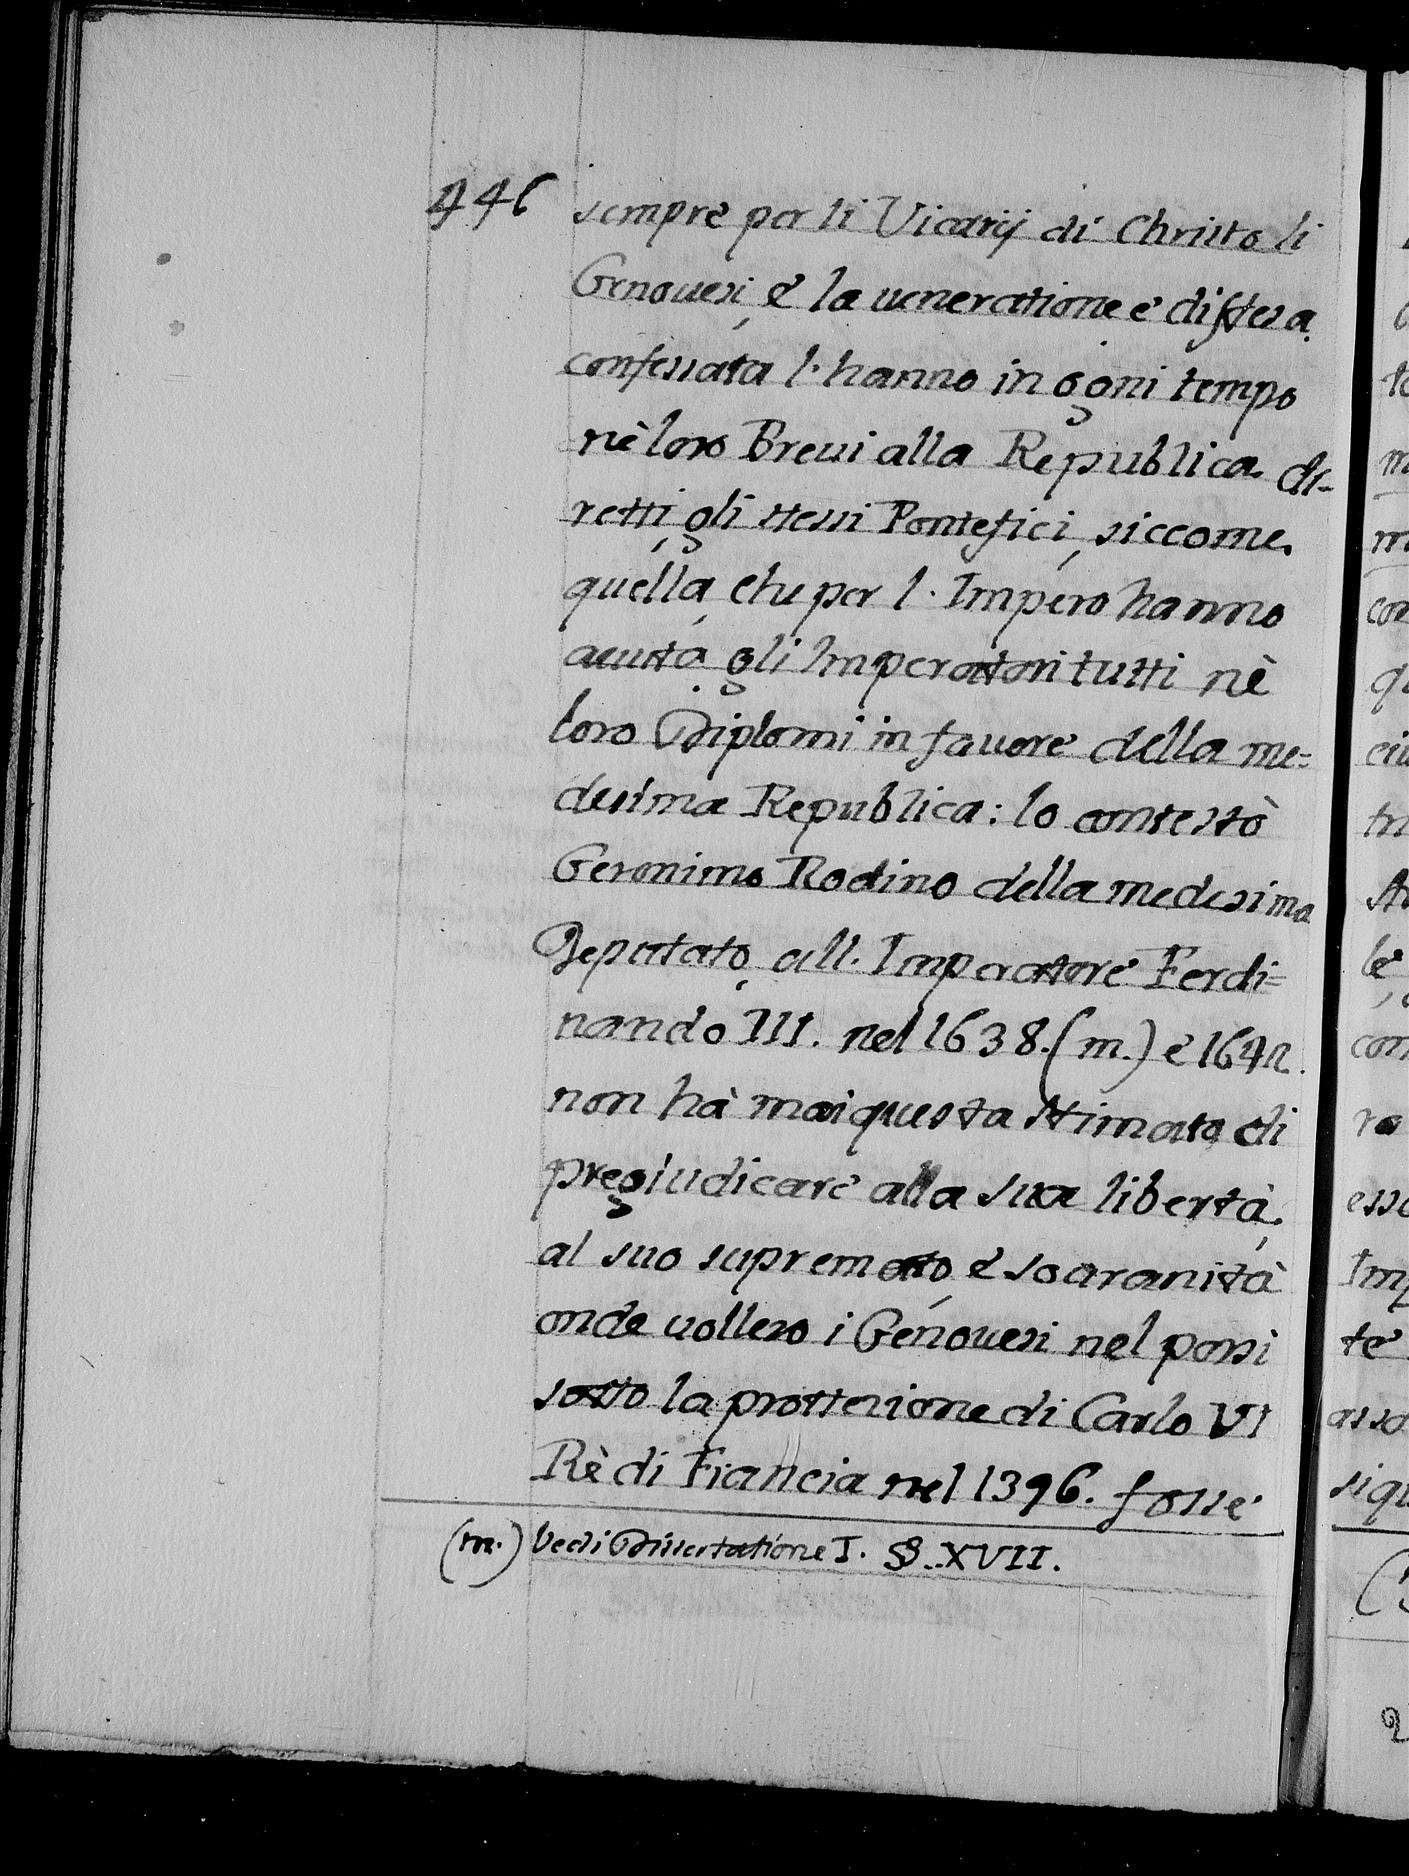 446
sempre per li Vicarij di Christo li
Genouesi, e la ueneratione e diffesa
confessata l'hanno in ogni tempo
nè loro Breui alla Republica di-
retti, gli stessi Pontefici, siccome
quella, che per l'Impero hanno
auuta, gli Imperattori tutti nè
loro Diplomi in fauore della me=
desima Republica: lo contestò
Geronimo Rodino della medesima
Deputato, all'Imperattore Ferdi=
nando III. nel 1638. (m.) e 1642.
non hà mai questa stimato di
pregiudicare alla sua libertà,
al suo supremato, e soaranità
onde vollero i Genouesi nel porsi
sotto la prottezione di Carlo VI
Rè di Francia nel 1396. fosse
(m.) Vedi Dissertatione I. §. XVII.